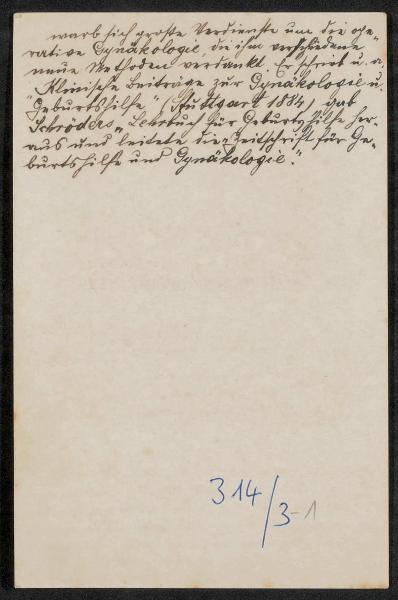 warb sich große Verdienste um die ope-
rative Gynäkologie, die ihm verschiedene
neue Methoden verdankt. Er schrieb u. a.
"Klinische Beiträge zur Gynäkologie u.
Geburtshilfe" (Stuttgart 1884) gab
Schröders „Lehrbuch für Geburtshilfe her-
aus und leitete die „Zeitschrift für Ge-
burtshilfe und Gynäkologie".
314/3-1